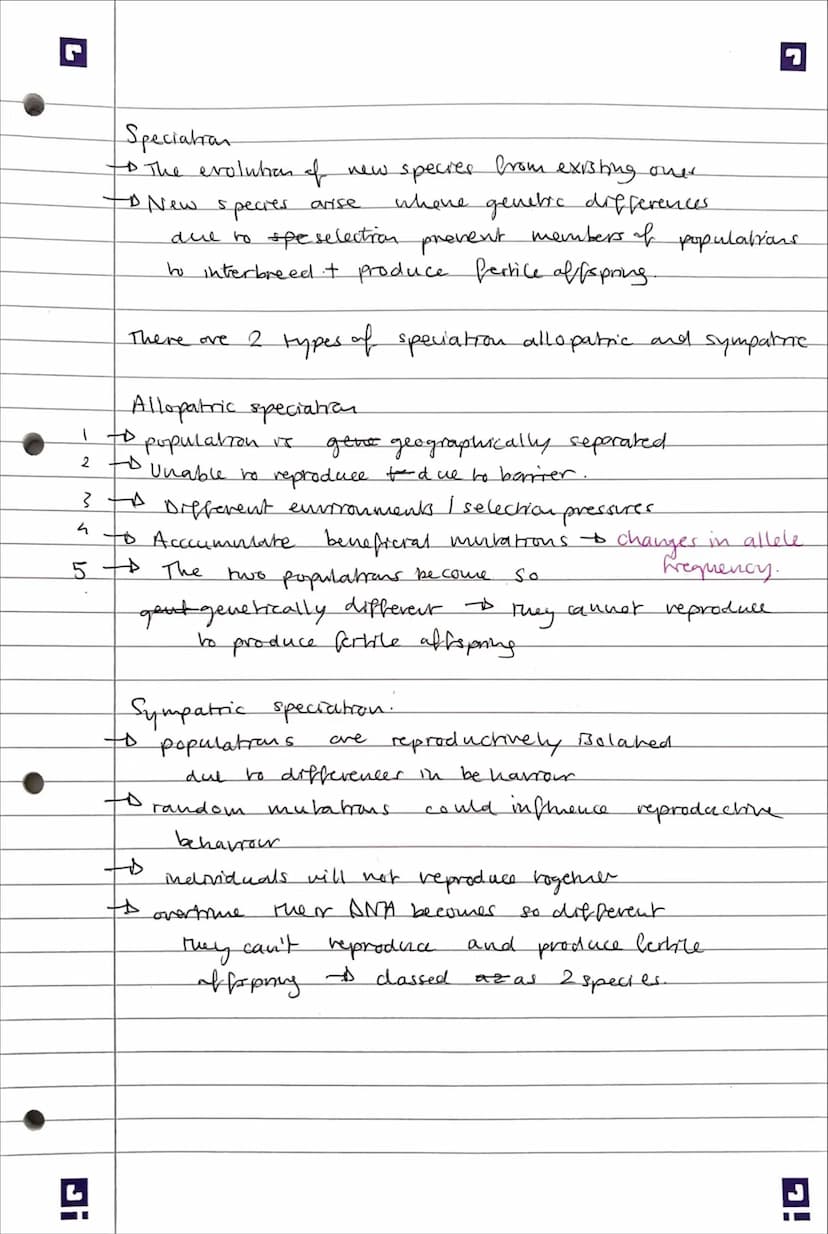 Speciation
→ The evolution of new species from existing ones
→ New species arise where genetic differences
due to spe selection prevent members of populations
to interbreed + produce fertile offspring.
There are 2 types of speciation allopatric and sympatric
Allopatric speciation
1 → population is gene geographically separated
2 → Unable to reproduce t due to barrier.
3 → Different environments / selection pressures
4 → Acccumulate beneficial mutations → changes in allele
frequency.
5 → The two populations become so
gent genetically different → they cannot reproduce
to produce fertile offspring
Sympatric speciation.
→ populations are reproductively isolated
due to differences in behaviour
→ random mutations could influence reproductive
behaviour
→ individuals will not reproduce together
→ overtime their DNA becomes so different
they can't reproduce and produce fertile
offspring → classed as as 2 species.